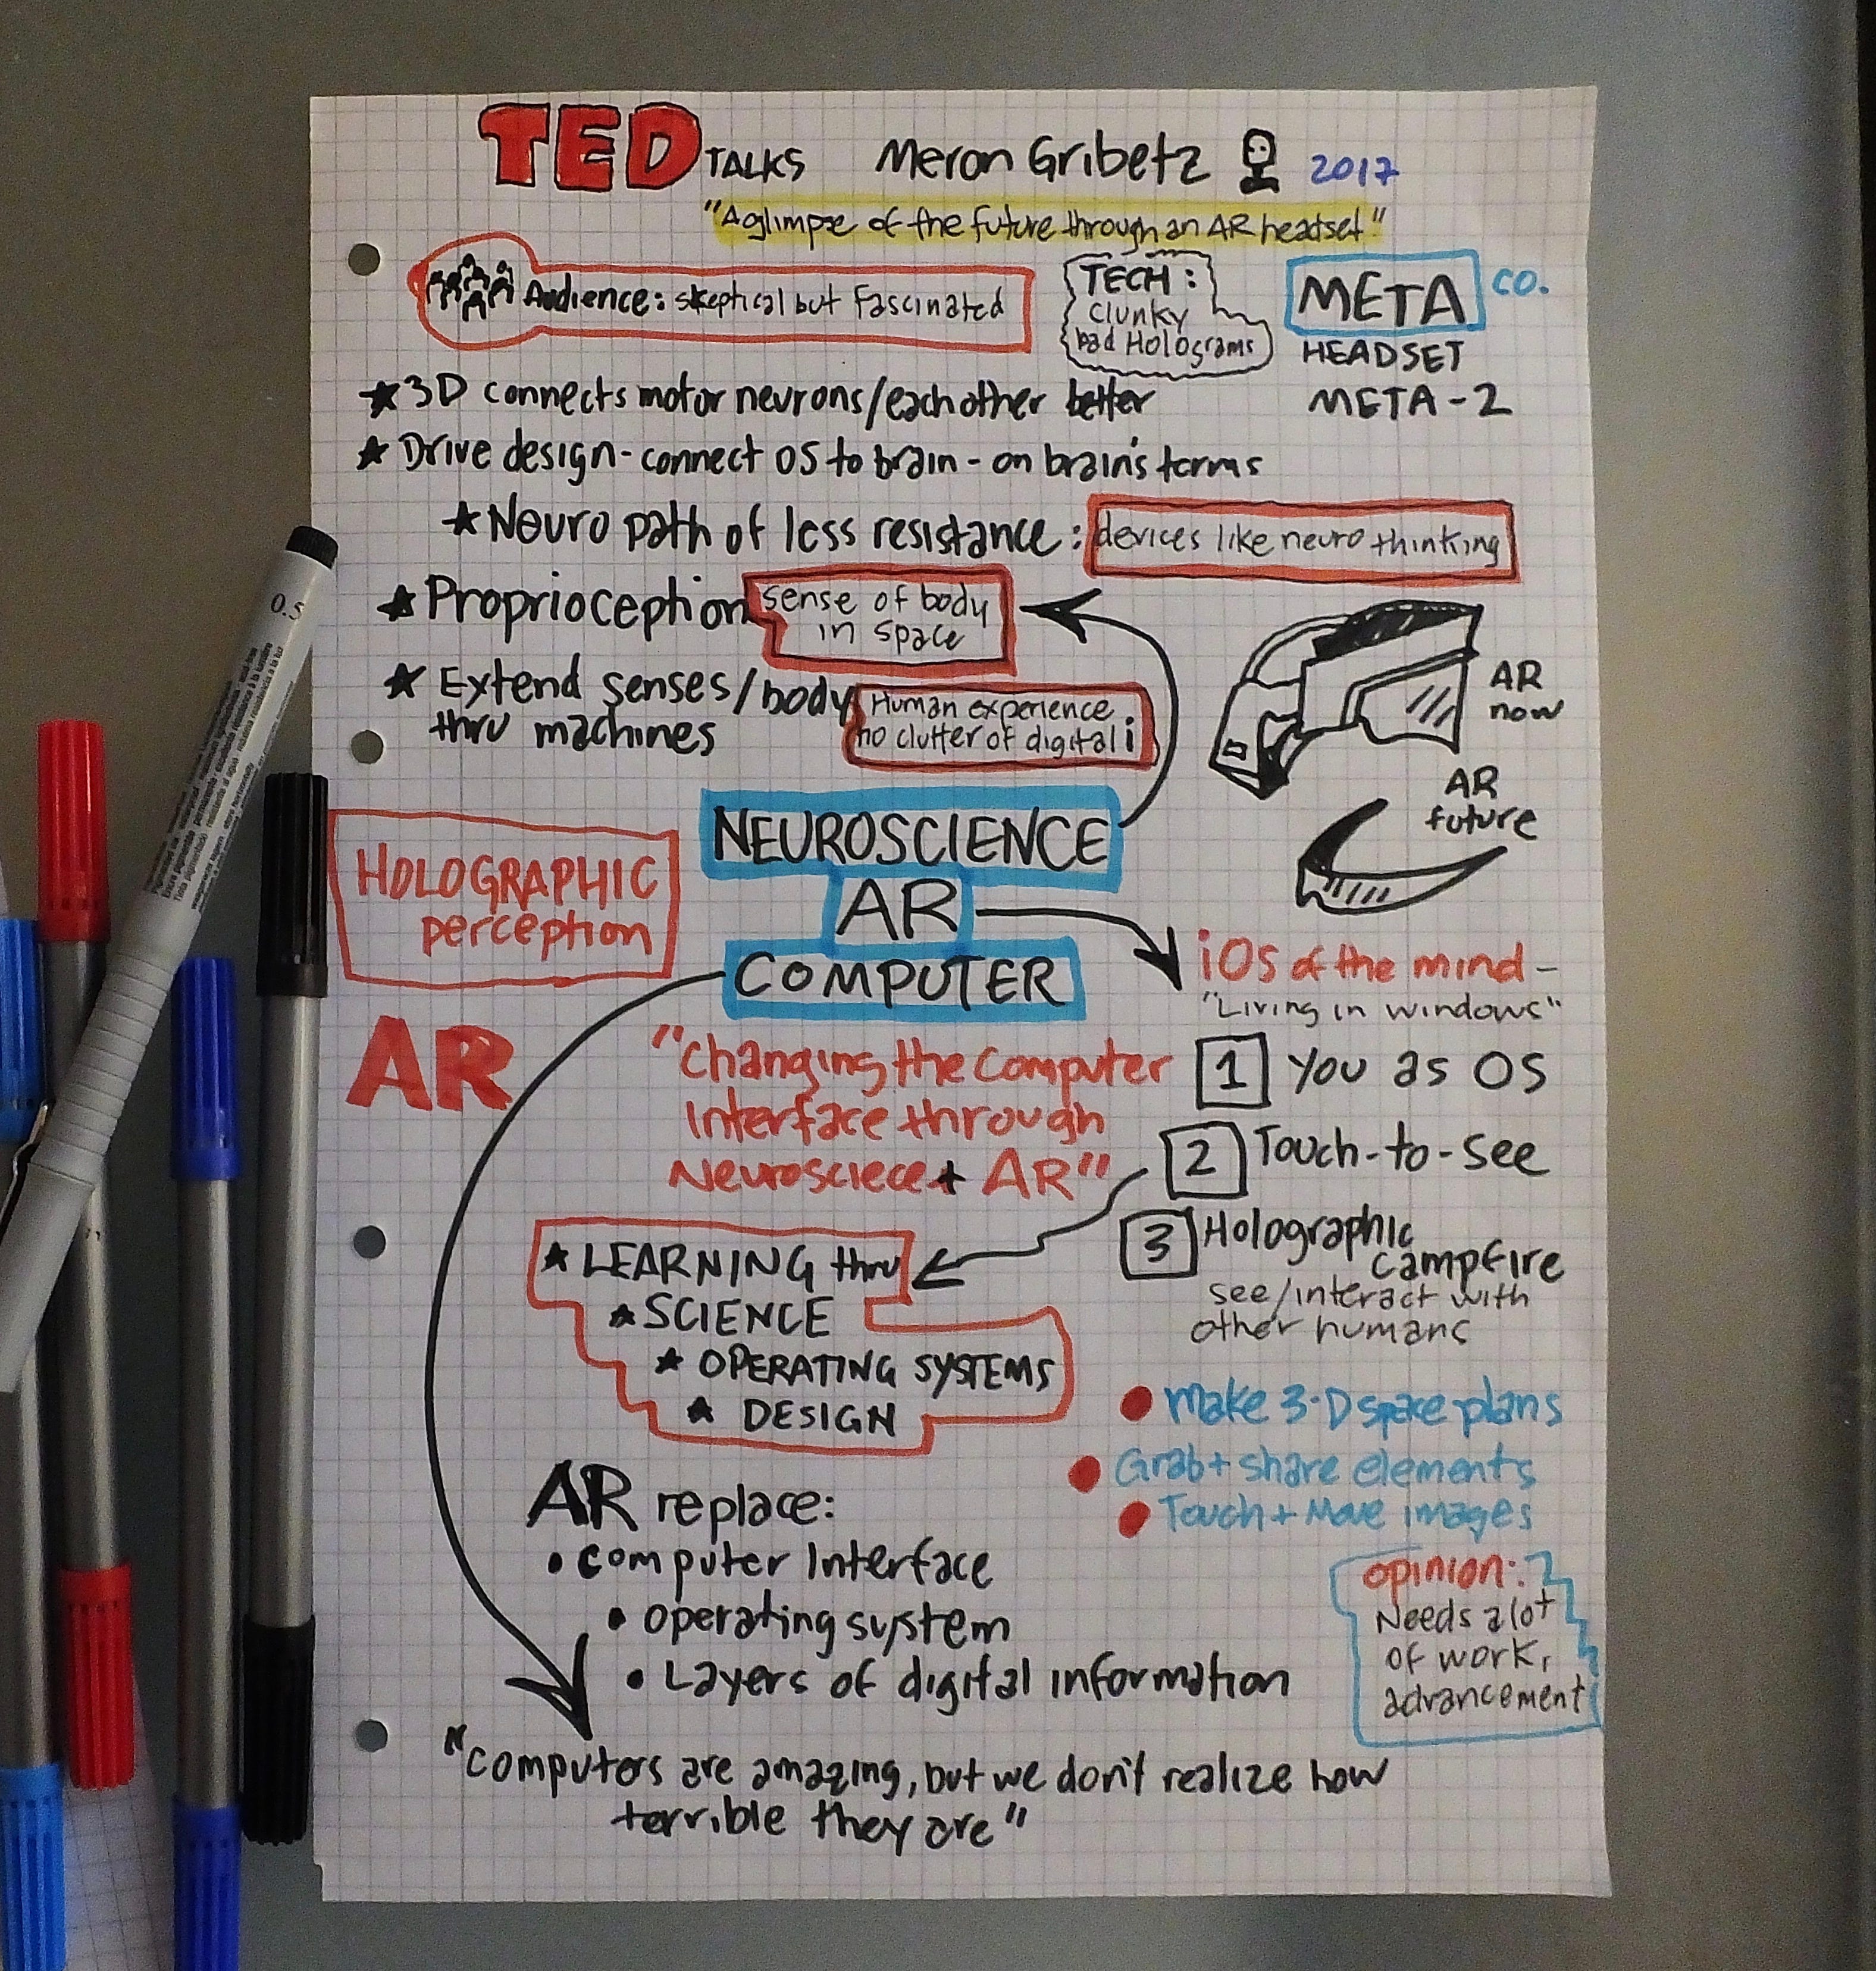 TED TALKS Meron Gribetz 2017
"A glimpse of the future through an AR headset"
Audience: skeptical but Fascinated
TECH:
Clunky
bad Holograms
META CO.
HEADSET
META-2
★ 3D connects motor neurons/each other better
★ Drive design - connect OS to brain - on brain's terms
★ Neuro path of less resistance: devices like neuro thinking
★ Proprioception sense of body
in space
★ Extend senses/body
thru machines
Human experience
no clutter of digital i
AR
now
AR
future
NEUROSCIENCE
AR
COMPUTER
HOLOGRAPHIC
perception
AR
iOS of the mind -
"Living in windows"
"Changing the Computer
Interface through
Neurosciece + AR"
1 You as OS
2 Touch-to-see
3 Holographic
campfire
see/interact with
other humans
★ LEARNING thru
★ SCIENCE
★ OPERATING SYSTEMS
★ DESIGN
• Make 3-D space plans
• Grab + share elements
• Touch + Move images
AR replace:
• Computer Interface
• Operating system
• Layers of digital information
opinion:
Needs a lot
of work,
advancement
"Computers are amazing, but we don't realize how
terrible they are"
0.5